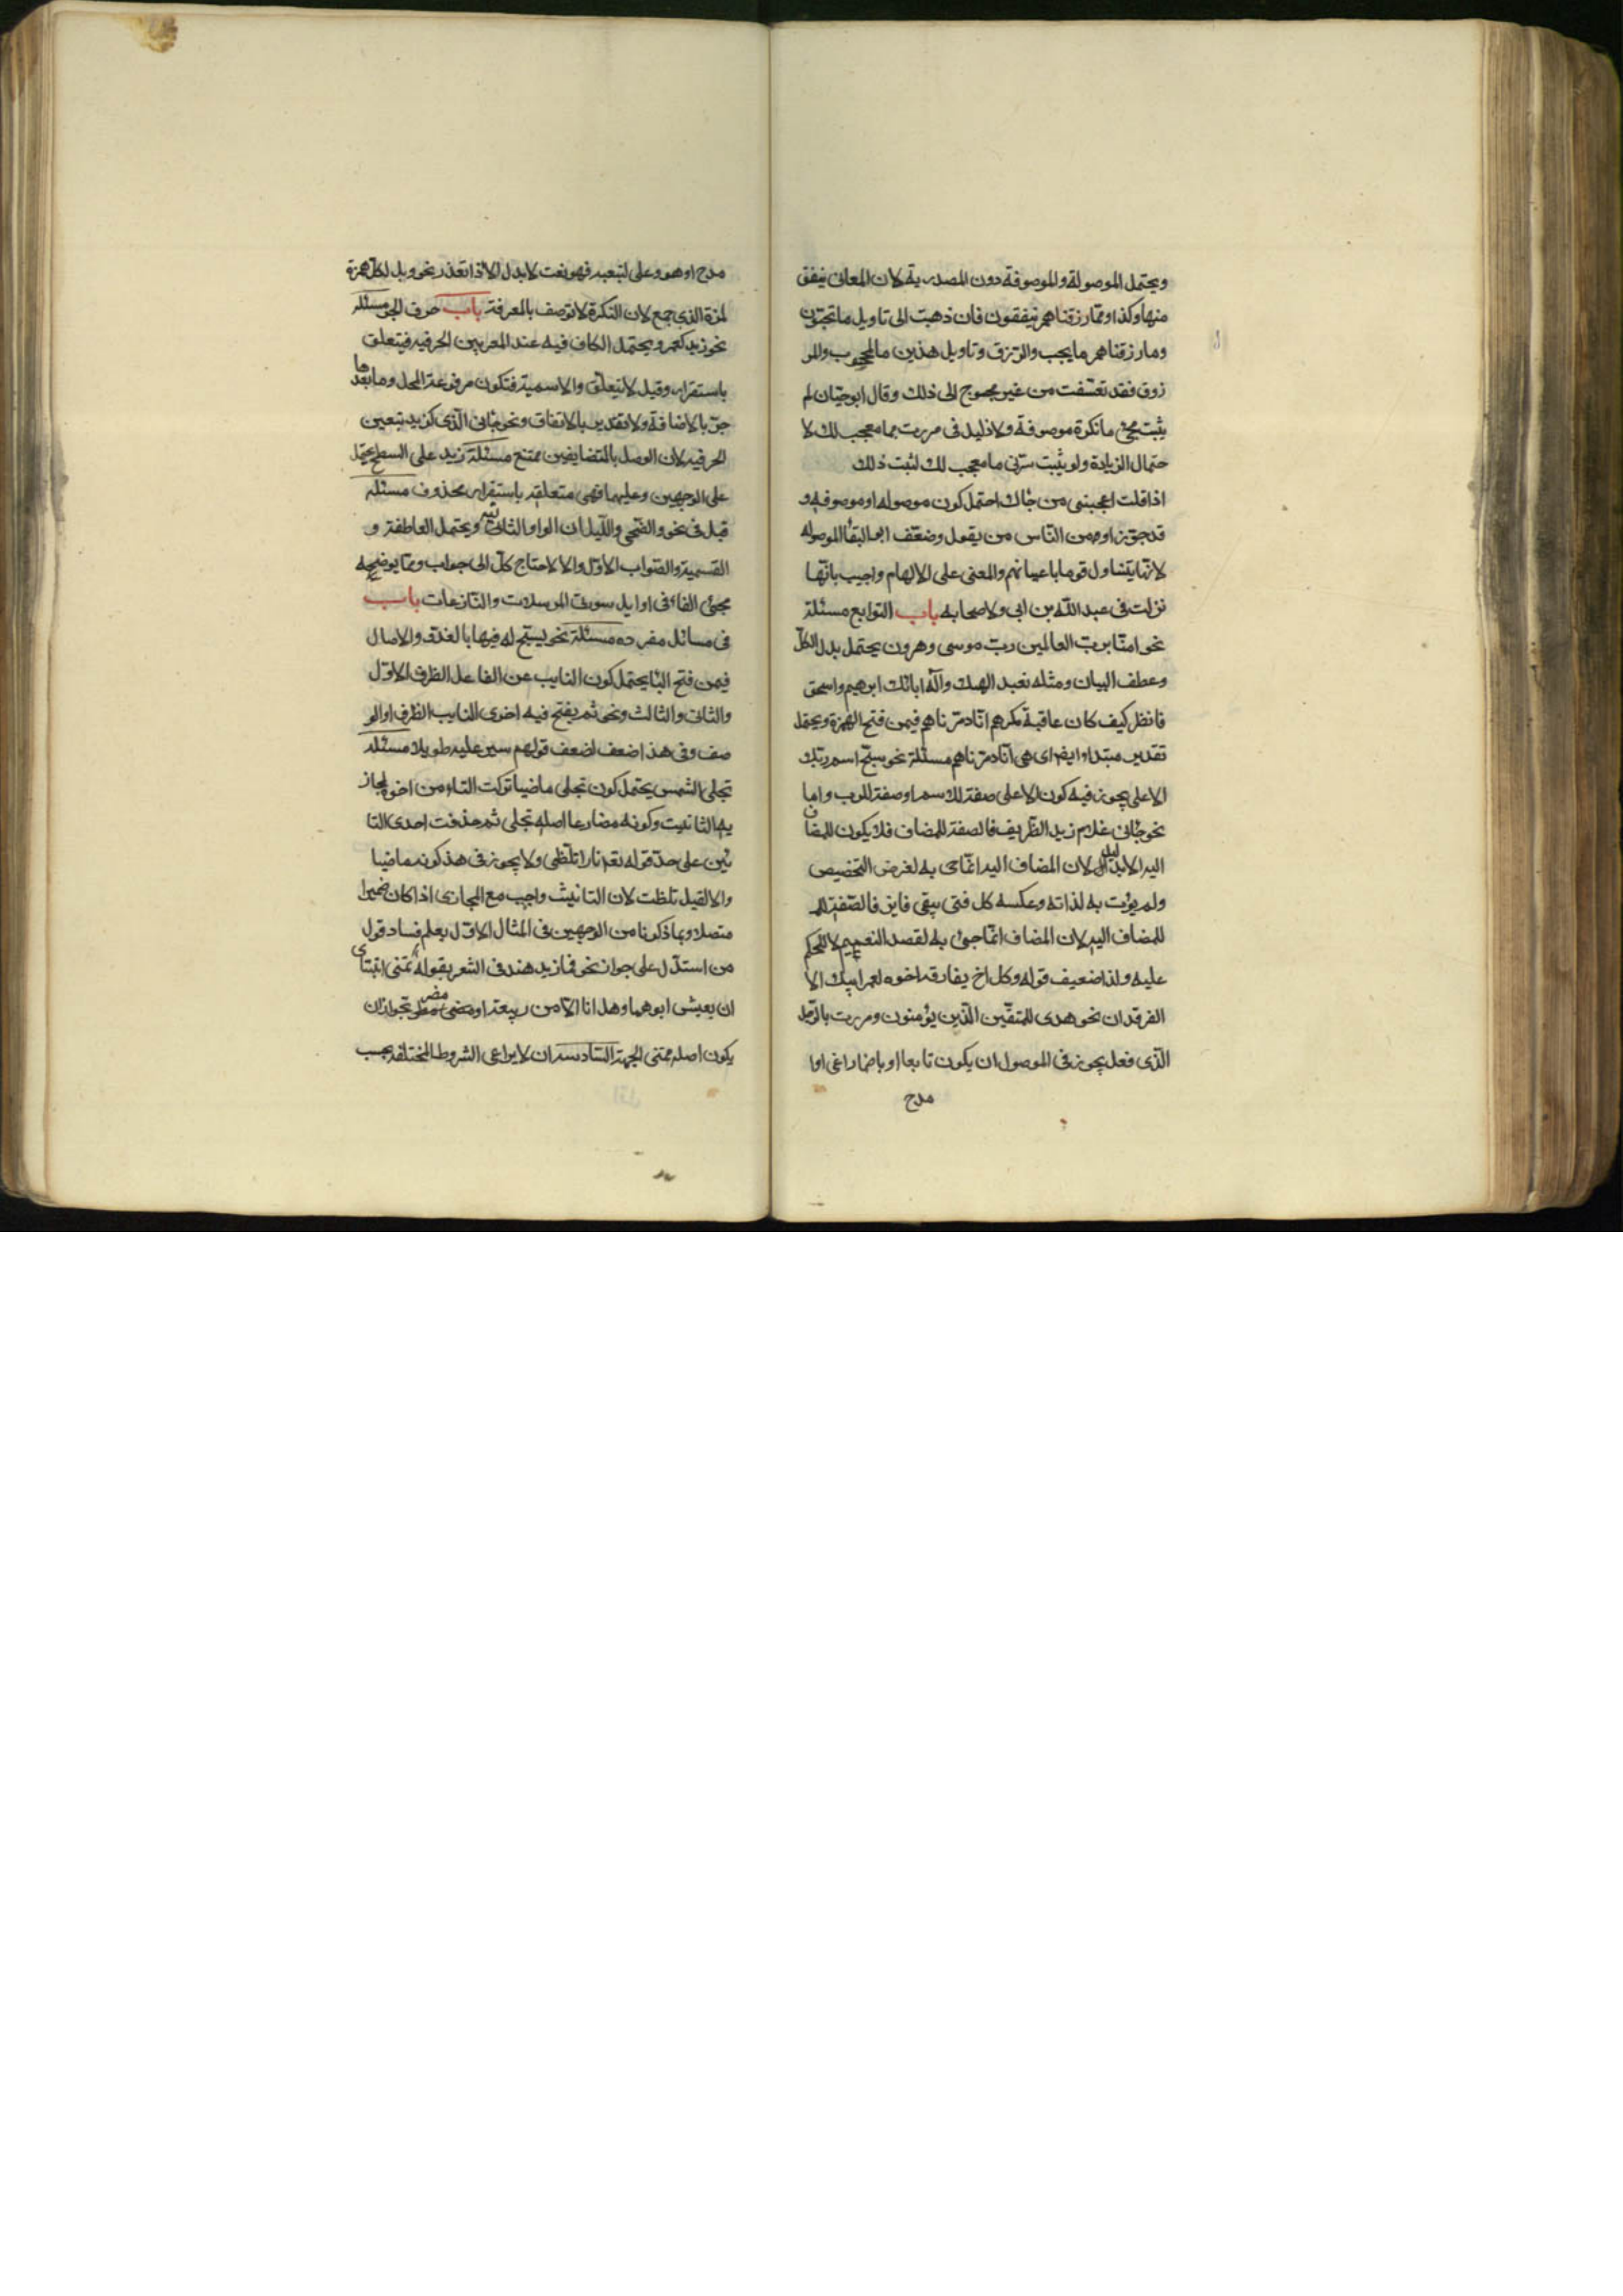 ويحتمل الموصولة والموصوفة دون المصدرية لان المعانى ينفق
منها وكذا ومما رزقناهم ينفقون فان ذهبت الى تاويل ما تحبون
وما رزقناهم مايحب والرزق وتاويل هذين مالمحبوب والمر
زوق فقد تعسفت من غير محوج الى ذلك وقال ابوحيان لم
يثبت مجئ ما نكرة موصوفة ولا دليل فى مررت بما معجب لك لا
حتمال الزيادة ولو يثبت سرنى ما معجب لك لثبت ذلك
اذا قلت اعجبنى من جاك احتمل كون موصوله او موصوفه و
قد جوز او من الناس من يقول وضعف ابو البقا الموصوله
لانها يتناول قوما باعيانهم والمعنى على الالهام واجيب بانها
نزلت فى عبد الله بن ابى ولاصحابه باب التوابع مسئلة
نحو امنا برب العالمين رب موسى وهرون يحتمل بدل الكل
وعطف البيان ومثله نعبد الهك واله ابائك ابرهيم واسحق
فانظر كيف كان عاقبة مكرهم انا دمرناهم فيمن فتح الهمزة ويحتمل
تقدير مبتدا وايضا اى هى انا دمرناهم مسئلة نحو سبح اسم ربك
الاعلى يجوز فيه كون الاعلى صفة للاسم او صفة للرب واما
نحو جانى غلام زيد الظريف فالصفة للمضاف فلا يكون للمضاف
اليه الا بدليل لان المضاف اليه انما جى به لغرض التخصيص
ولم يؤت به لذاته وعكسه كل فتى يتقى فايز فالصفة للم
للمضاف اليه لان المضاف انما جئ به لقصد التعميم لا للحكم
عليه ولذا ضعيف قوله وكل اخ يفارقه اخوه لعمر ابيك الا
الفرقدان نحو هدى للمتقين الذين يؤمنون ومررت بالرجل
الذى فعل يجوز فى الموصول ان يكون تابعا او باضمار اعنى اوا
مدح
مدح او هو وعلى لتبعيه فهو نعت لابدل الا اذا تعذر نحو ويل لكل همزة
لمزة الذى جمع لان النكرة لاتوصف بالمعرفة باب حرف الجر مسئله
نحو زيد كعمرو يحتمل الكاف فيه عند المعربين الحرفيه فيتعلق
باستقرار وقيل لايتعلق والاسمية فتكون مرفوعة المحل وما بعدها
جر بالاضافة ولا تقدير بالاتفاق ونحو جانى الذى كزيد يتعين
الحرفيه لان الوصل بالمتضايفين ممتنع مسئلة زيد على السطح يحتمل
على الوجهين وعليهما فهى متعلقه باستقرار محذوف مسئله
قيل فى نحو والضحى والليل ان الواو الثانيه ويحتمل العاطفة و
القسمية والصواب الاول والا لاحتاج كل الى جواب ومما يوضحه
مجئ الفا فى اوايل سورة المرسلات والنازعات باب
فى مسائل مفرده مسئلة نحو يسبح له فيها بالغدو والاصال
فيمن فتح البا يحتمل كون النايب عن الفاعل الظرف الاول
والثانى والثالث ونحو ثم يفتح فيه اخرى النايب الظرف او الو
صف وفى هذا ضعف لضعف قولهم سير عليه طويلا مسئله
تجلى الشمس يحتمل كون تجلى ماضيا تركت التاء من اخره لمجاز
يه التانيث وكونه مضارعا اصله تتجلى ثم حذفت احدى التا
ئين على حد قوله تعم نارا تلظى ولا يجوز فى هذ كونه ماضيا
والا لقيل تلظت لان التانيث واجب مع المجازى اذا كان ضميرا
متصلا وبما ذكونا من الوجهين فى المثال الاول يعلم فساد قول
من استدل على جواز نحو قام زيد هند فى الشعر بقوله تمنى ابنتاى
ان يعيش ابوهما وهل انا الا من ربيعة او مضر تجواز ان
يكون اصله تتمنى الجهة السادسة ان لا يراعى الشروط المختلفة بحسب